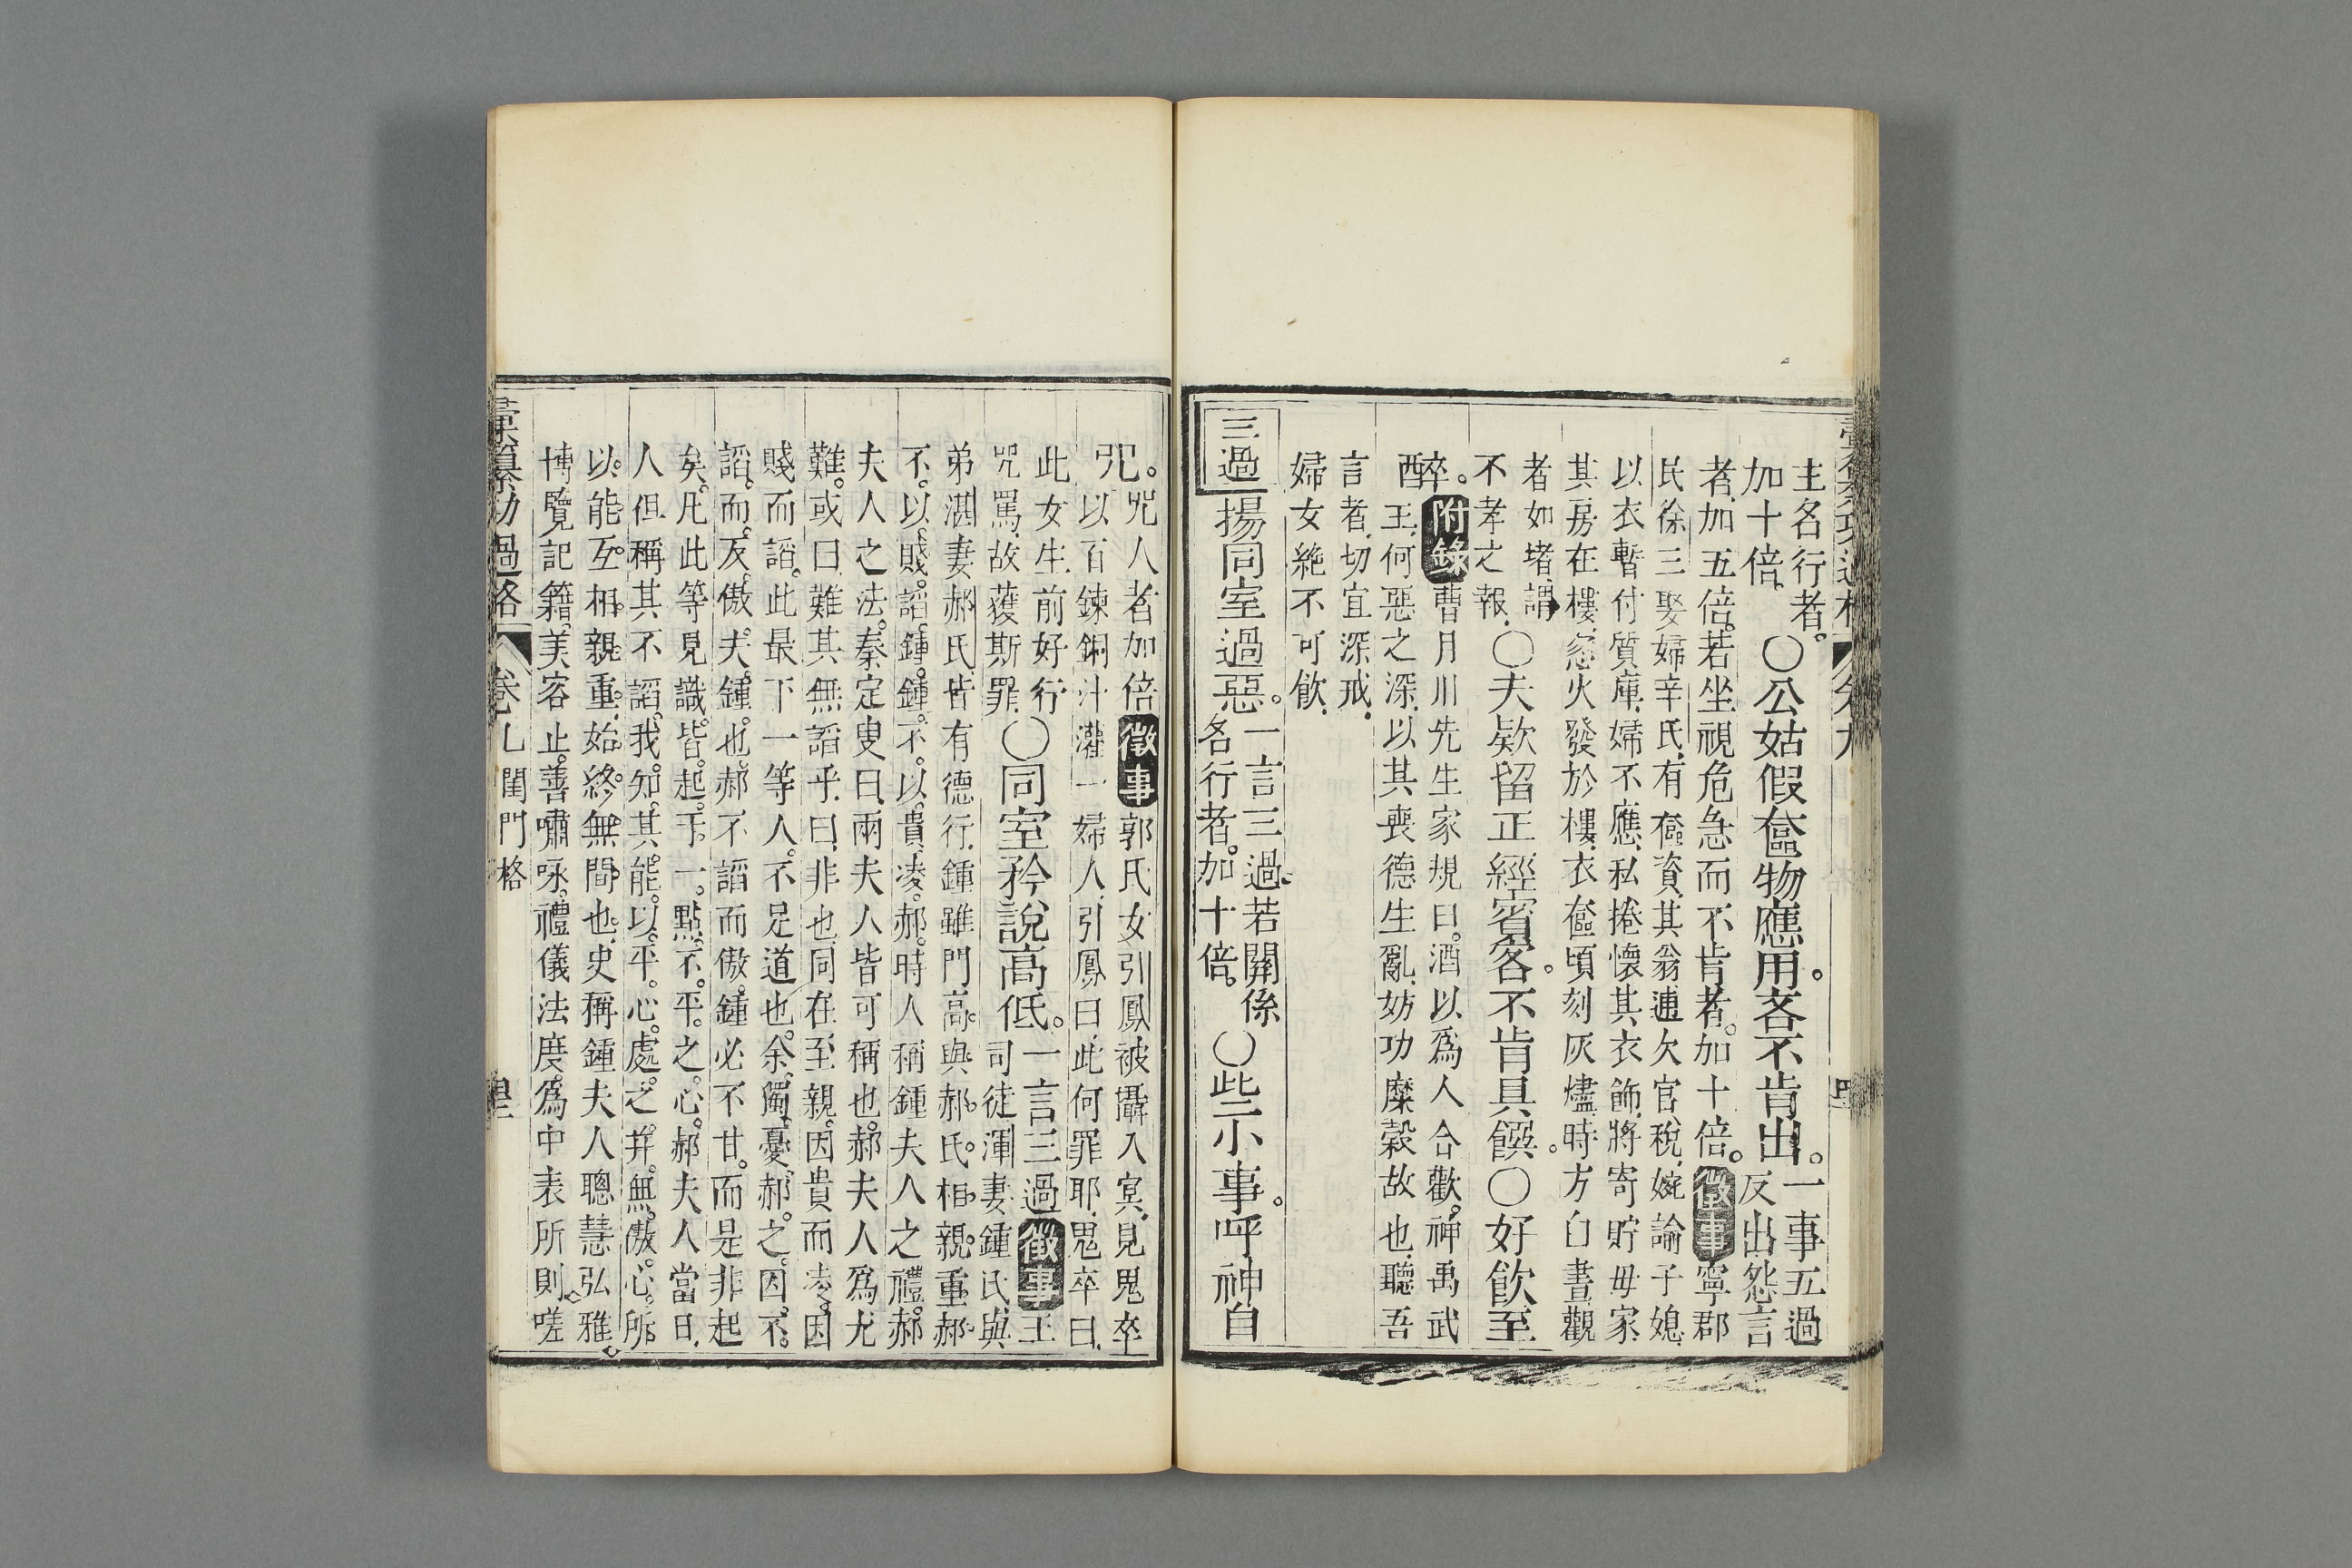 主名行者。
加十倍。〇公姑假奩物應用。吝不肯出。一事五過
反出怨言
者、加五倍。若坐視危急而不肯者。加十倍。徵事寧郡
民徐三娶婦辛氏、有奩資、其翁逋欠官稅、婉論子媳、
以衣暫付質庫、婦不應、私捲懷其衣飾、將寄貯母家、
其房在樓、忽火發於樓、衣奩頃刻灰燼、時方白晝、觀
者如堵、謂
不孝之報、〇夫欵留正經賓客。不肯具饌。〇好飲至
醉。附錄曹月川先生家規曰。酒以爲人合歡。神禹武
酗王、何惡之深、以其喪德生亂、妨功糜穀故也、聽吾
言者、切宜深戒、
婦女絶不可飲、
三過揚同室過惡。一言三過若關係
各行者。加十倍。〇些小事。呼神自
咒。咒人者加倍徵事郭氏女引鳳被攝入冥、見鬼卒
以百鍊銅汁灌一婦人、引鳳曰、此何罪耶、鬼卒曰、
此女生前好行
咒罵、故獲斯罪、〇同室矜說高低。一言三過徵事王
司徒渾妻鍾氏、與
弟湛妻郝氏、皆有德行、鍾雖門高。與郝。氏。相。親。重。郝。
不。以。賤。謟。鍾。鍾。不。以。貴。凌。郝。時人稱鍾夫人之禮。郝
夫人之法。秦定叟曰、兩夫人皆可稱也。郝夫人爲尤
難。或曰、難其無謟乎、曰、非也、同在至親。因貴而凌。因
賤而謟。此最下一等人。不足道也。余。獨。憂。郝。之。因。不。
謟。而。反。傲。夫。鍾。也。郝不謟而傲。鍾必不甘。而是非起
矣。凡此等見識。皆。起。于。一。點。不。平。之。心。郝夫人當日、
人但稱其不謟。我。知。其。能。以。平。心。處。之。幷。無。傲。心。所。
以。能。互。相。親。重。始。終。無。間。也。史稱鍾夫人聰慧弘雅、
博覽記籍。美容止。善嘯咏。禮儀法度。爲中表所則、嗟
彙纂功過格 卷七 閨門格